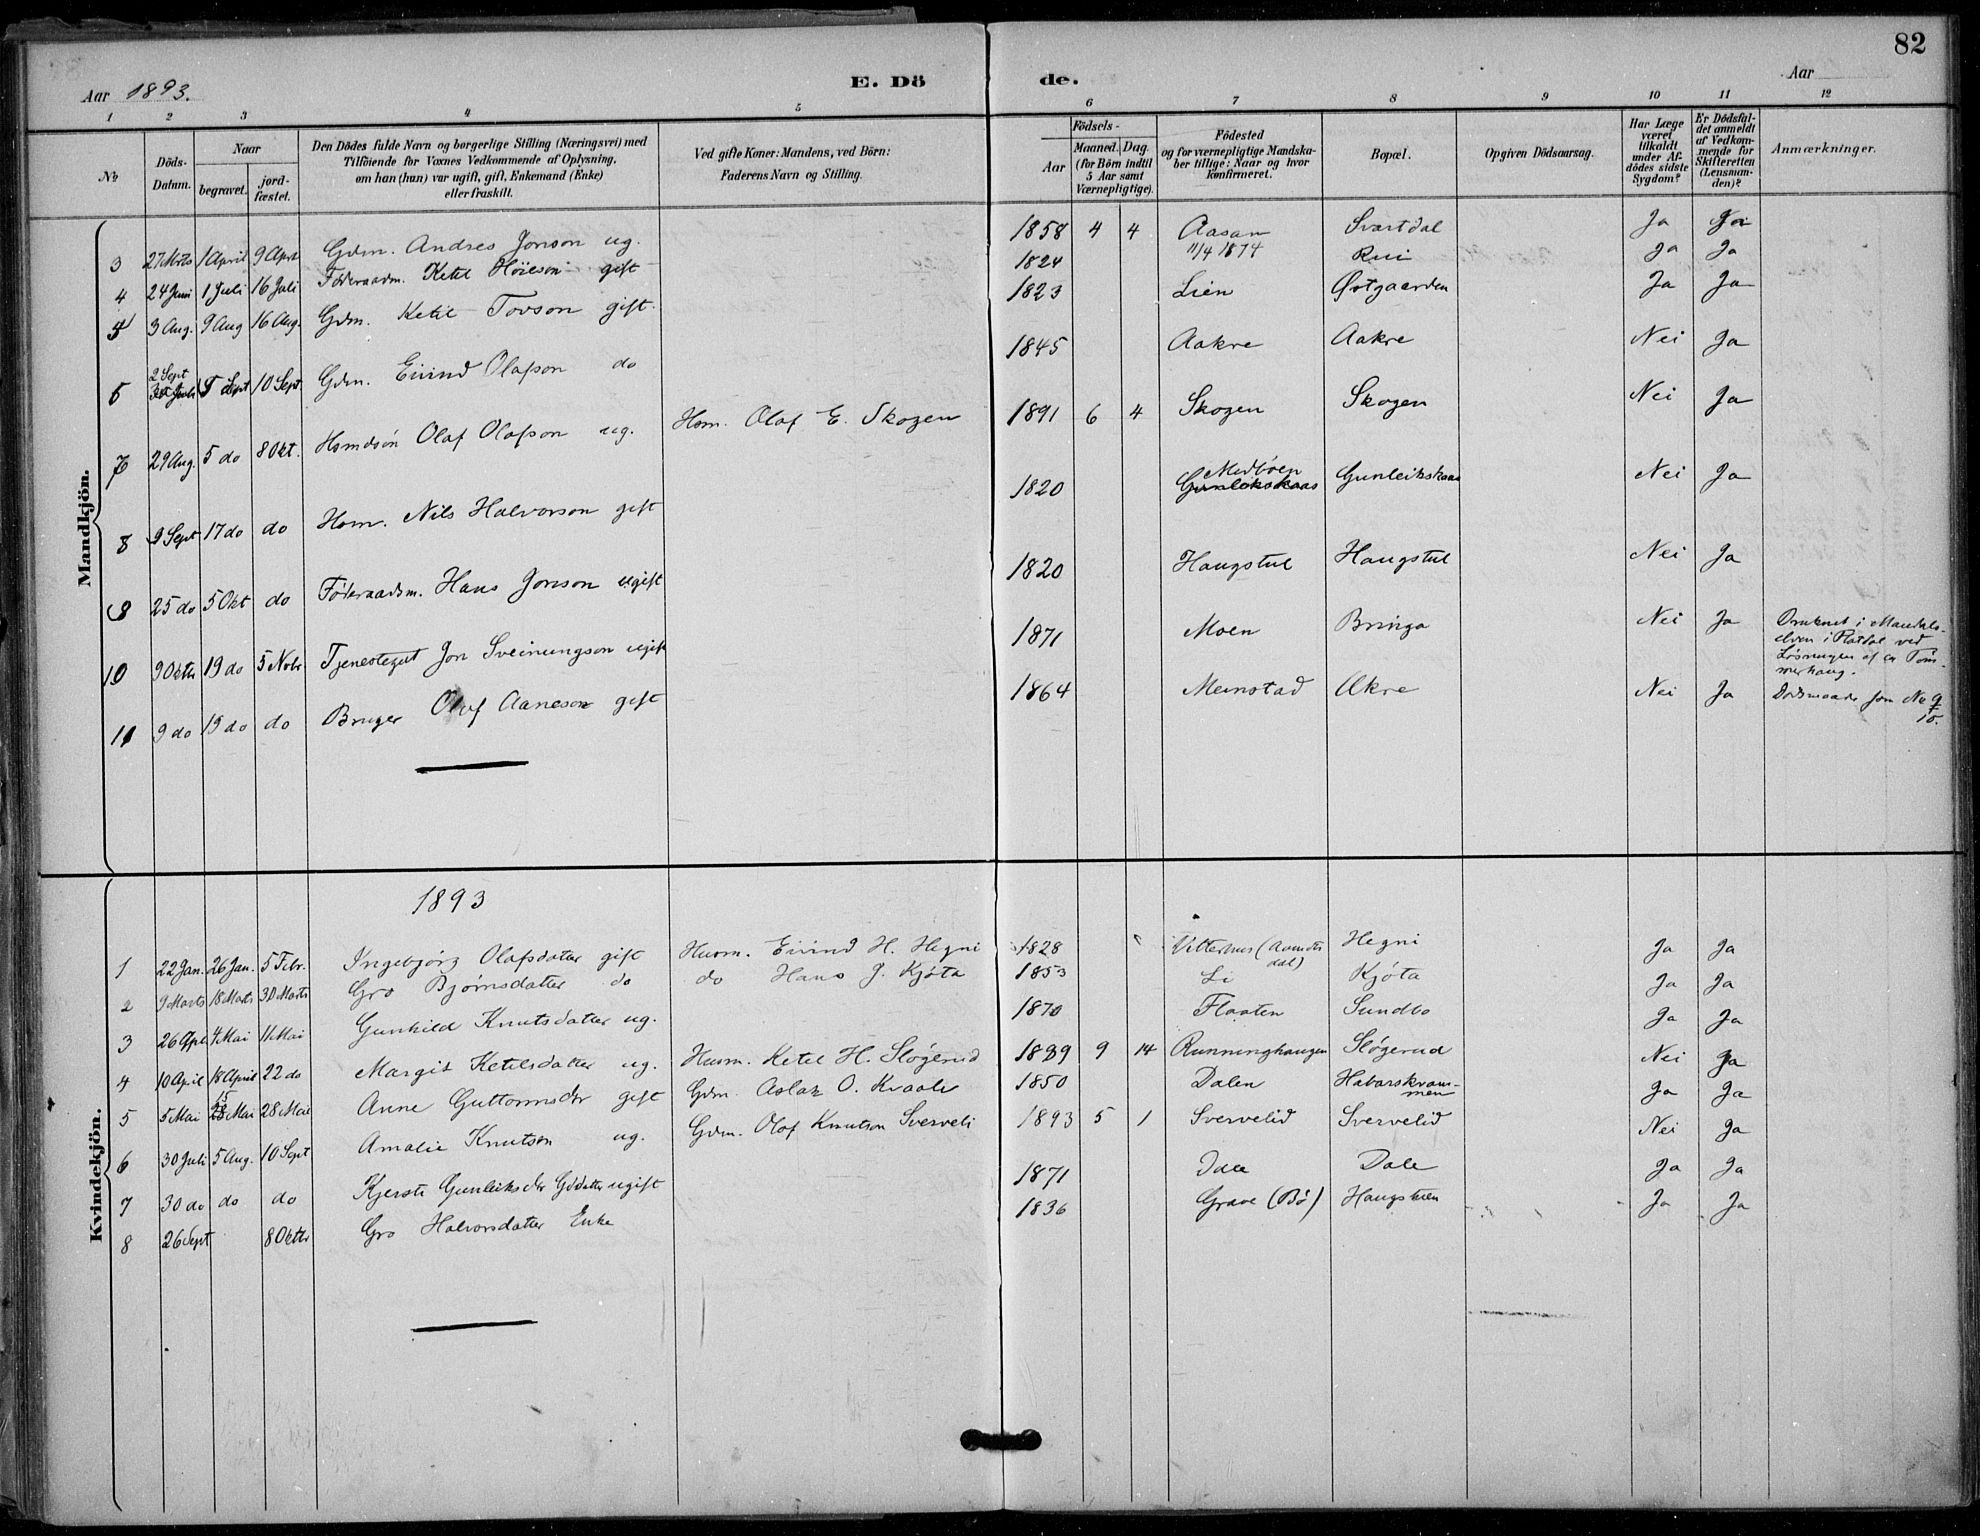 82
Aar 1893.
E. Dö de.
Aar
1 2 3 4 5 6 7 8 9 10 11 12
№
Döds-Datum.
Naar
begravet.
jordfæstet.
Den Dödes fulde Navn og borgerlige Stilling (Næringsvei) med
Tilföiende for Voxnes Vedkommende af Oplysning,
om han (hun) var ugift, gift, Enkemand (Enke)
eller fraskilt.
Ved gifte Koner: Mandens, ved Börn:
Faderens Navn og Stilling.
Födsels-
Aar
Maaned. Dag.
(for Börn indtil
5 Aar samt
Værnepligtige).
Födested
og for værnepligtige Mandskaber tillige: Naar og hvor
konfirmeret.
Bopæl.
Opgiven Dödsaarsag.
Har Læge
været
tilkaldt
under Afdödes sidste
Sygdom?
Er Dödsfaldet anmeldt
af Vedkommende for
Skifteretten
(Lensmanden)?
Anmærkninger.
Mandkjön.
3 27 Mrts 1 April 9 Aprl Gdm. Andres Jonson ug. 1858 4 4 Aasan 11/4 1874 Svartdal Ja Ja
4 24 Juni 1 Juli 16 Juli Föderaadm. Ketil Höieson gift 1824 Rui Ja Ja
5 3 Aug. 9 Aug 16 Aug. Gdm. Ketil Tovson gift. 1823 Lien Østgaarden Ja Ja
6 2 Sept 5 Sept 10 Sept. Gdm. Eivind Olafson do 1845 Aakre Aakre Nei Ja
7 29 Aug. 5 do 8 Okt. Hsmdsøn Olaf Olafson ug. Hsm. Olaf E. Skogen 1891 6 4 Skogen Skogen Nei Ja
8 9 Sept 17 do do Hsm. Nils Halvorson gift 1820 Medbøen Gunleikskaas Gunleikskaas Nei Ja
9 25 do 5 Okt do Föderaadsm. Hans Jonson ugift 1820 Haugstul Haugstul Nei Ja
10 9 Oktbr 19 do 5 Nobr Tjenestegut Jon Sveinungson ugift 1871 Moen Bringa Nei Ja Druknet i Mandals-
elven i Flatdal ved
Løsningen af en Tøm-
merhaug.
11 9 do 19 do do Bruger Olaf Aaneson gift 1864 Meinstad Akre Nei Ja Dødsmaade som No 9
10.
Kvindekjön.
1893
1 22 Jan. 26 Jan. 5 Febr. Ingebjørg Olafsdatter gift Husm. Eivind H. Hegni 1828 Vitterhus (Aamots
dal) Hegni Ja Ja
2 9 Marts 18 Marts 30 Marts Gro Bjørnsdatter do do Hans J. Kjøta 1853 Li Kjøta Ja Ja
3 26 Apl 4 Mai 11 Mai Gunhild Knutsdatter ug. 1870 Flaaten Sundbo Ja Ja
4 10 April 18 April 22 do Margit Ketilsdatter ug. Husm. Ketil H. Sløgerud 1889 9 14 Runninghaugen Sløgerud Nei Ja
5 5 Mai 15 Mai 28 Mai Anne Guttormsdr gift Gdm. Aslak O. Kraale 1850 Dalen Habarskvam-
men Ja Ja
6 30 Juli 5 Aug. 10 Sept Amalie Knutson ug. Gdm. Olaf Knutson Sverveli 1893 5 1 Svervelid Svervelid Nei Ja
7 30 do do do Kjersti Gunleiksdr Gddatter ugift 1871 Dale Dale Ja Ja
8 26 Sept 8 Oktbr Gro Halvorsdatter Enke 1836 Grave (Bø) Haugstuen Ja Ja